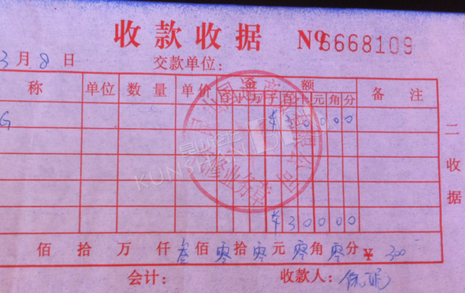 收款收据 № 6668109
3月8日 交款单位：
称 单位 数量 单价 金额 备注
百 十 万 千 百 十 元 角 分
G ¥ 3 0 0 0 0
¥ 3 0 0 0 0
佰 拾 万 仟 叁佰零拾零元零角零分 ¥ 300
会计： 收款人：
二收据